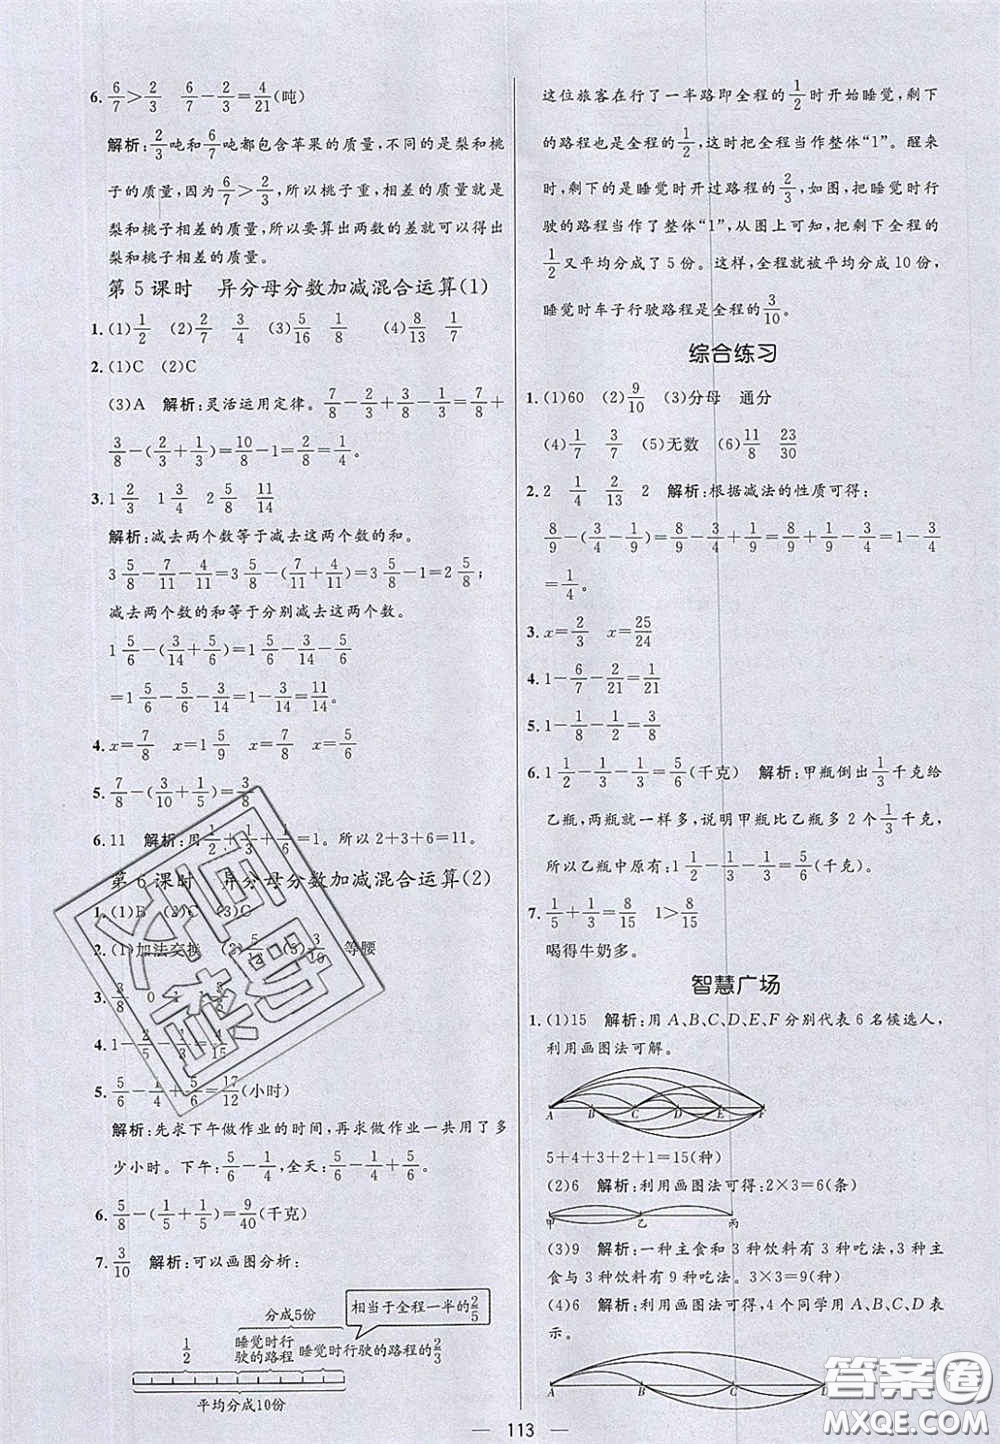 6. 6/7>2/3 6/7-2/3=4/21(吨)
解析:2/3吨和6/7吨都包含苹果的质量,不同的是梨和桃
子的质量,因为6/7>2/3,所以桃子重,相差的质量就是
梨和桃子相差的质量,所以要算出两数的差就可以得出
梨和桃子相差的质量。
第5课时 异分母分数加减混合运算(1)
1. (1)1/2 (2)2/7 3/4 (3)5/16 (4)8/13 1/7
2. (1)C (2)C
(3)A 解析:灵活运用定律。7/8-2/3+3/8-1/3=7/8+
3/8-(2/3+1/3)=10/8-1=2/8=1/4。
3. 1 2/3 1 3/4 2 5/8 11/14
解析:减去两个数等于减去这两个数的和。
3 5/8-7/11-4/11=3 5/8-(7/11+4/11)=3 5/8-1=2 5/8;
减去两个数的和等于分别减去这两个数。
1 5/6-(3/14+5/6)=1 5/6-3/14-5/6
=1 5/6-5/6-3/14=1-3/14=11/14。
4. x=7/8 x=1 5/9 x=3/8 x=5/6
5. 7/8-(3/10+1/5)=3/8
6. 11 解析:用1/2+1/3+1/6=1。所以2+3+6=11。
第6课时 异分母分数加减混合运算(2)
1. (1)B (2)C (3)C
2. (1)加法交换 (2)5/12 (3)3/10 等腰
3. 3/8 0 1
4. 1-2/5
5. 5/6-1/4+5/6=17/12(小时)
解析:先求下午做作业的时间,再求做作业一共用了多
少小时。下午:5/6-1/4,全天:5/6-1/4+5/6。
6. 5/8-(1/5+1/5)=9/40(千克)
7. 3/10 解析:可以画图分析:
分成5份
相当于全程一半的2/5
1/2 睡觉时行驶的路程 睡觉时行驶的路程的2/3
平均分成10份
这位旅客在行了一半路即全程的1/2时开始睡觉,剩下
的路程也是全程的1/2,这时把全程当作整体“1”。醒来
时,剩下的是睡觉时开过路程的2/3,如图,把睡觉时行
驶的路程当作了整体“1”,从图上可知,把剩下全程的
1/2又平均分成了5份。这样,全程就被平均分成10份,
睡觉时车子行驶路程是全程的3/10。
综合练习
1. (1)60 (2)9/10 (3)分母 通分
(4)1/7 3/7 (5)无数 (6)11/8 23/30
2. 2 1/4 2/13 2 解析:根据减法的性质可得:
8/9-(3/4-1/9)=8/9-3/4+1/9=8/9+1/9-3/4=1-3/4
=1/4。
3. x=2/3 x=25/24
4. 1-6/7-2/21=1/21
5. 1-1/8-1/2=3/8
6. 1 1/2-1/3-1/3=5/6(千克) 解析:甲瓶倒出1/3千克给
乙瓶,两瓶就一样多,说明甲瓶比乙瓶多2个1/3千克,
所以乙瓶中原有:1 1/2-1/3-1/3=5/6(千克)。
7. 1/5+1/3=8/15 1>8/15
喝得牛奶多。
智慧广场
1. (1)15 解析:用A、B、C、D、E、F分别代表6名候选人,
利用画图法可解。
A B C D E F
5+4+3+2+1=15(种)
(2)6 解析:利用画图法可得:2×3=6(条)
甲 乙 丙
(3)9 解析:一种主食和3种饮料有3种吃法,3种主
食与3种饮料有9种吃法。3×3=9(种)
(4)6 解析:利用画图法可得,4个同学用A、B、C、D表
示。
A B C D
113
答案圈
MXQE.COM